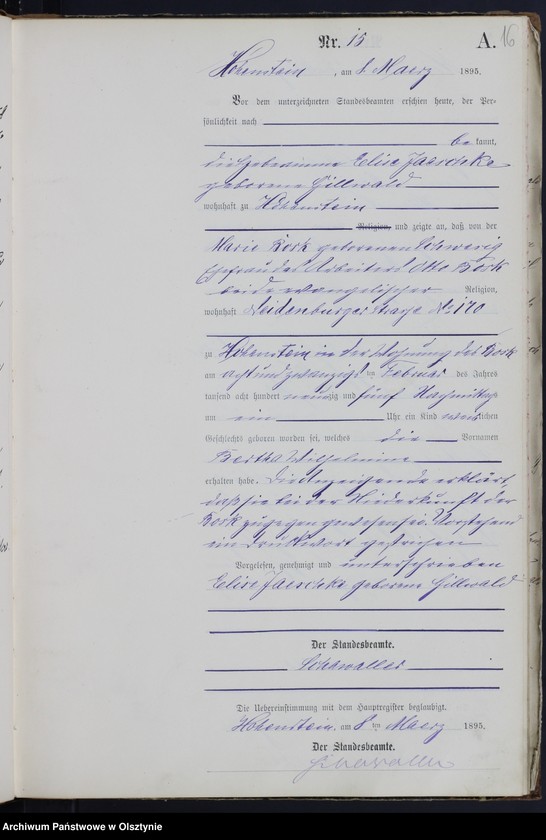 Nr. 15
A. 16
Hohenstein, am 8 Maerz 1895.
Vor dem unterzeichneten Standesbeamten erschien heute, der Per-
sönlichkeit nach
bekannt,
die Hebeamme Elise Jaeschke
geborene Gillwald
wohnhaft zu Hohenstein
Religion, und zeigte an, daß von der
Marie Bork geborenen
Ehefrau des Arbeiters Otto Bork
beide evangelischer Religion,
wohnhaft Neidenburger Straße No 170
zu Hohenstein in der Wohnung des Bork
am achtundzwanzigsten Februar des Jahres
tausend acht hundert neunzig und fünf Nachmittags
um ein Uhr ein Kind weiblichen
Geschlechts geboren worden sei, welches die Vornamen
Bertha Wilhelmine
erhalten habe. Die Anzeigende erklärt,
daß sie bei der Niederkunft der
Bork zugegen gewesen sei. Vorstehend
ein Druckwort gestrichen
Vorgelesen, genehmigt und unterschrieben
Elise Jaeschke geborene Gillwald
Der Standesbeamte.
Schawaller
Die Uebereinstimmung mit dem Hauptregister beglaubigt.
Hohenstein, am 8ten Maerz 1895.
Der Standesbeamte.
Schawaller
Archiwum Państwowe w Olsztynie